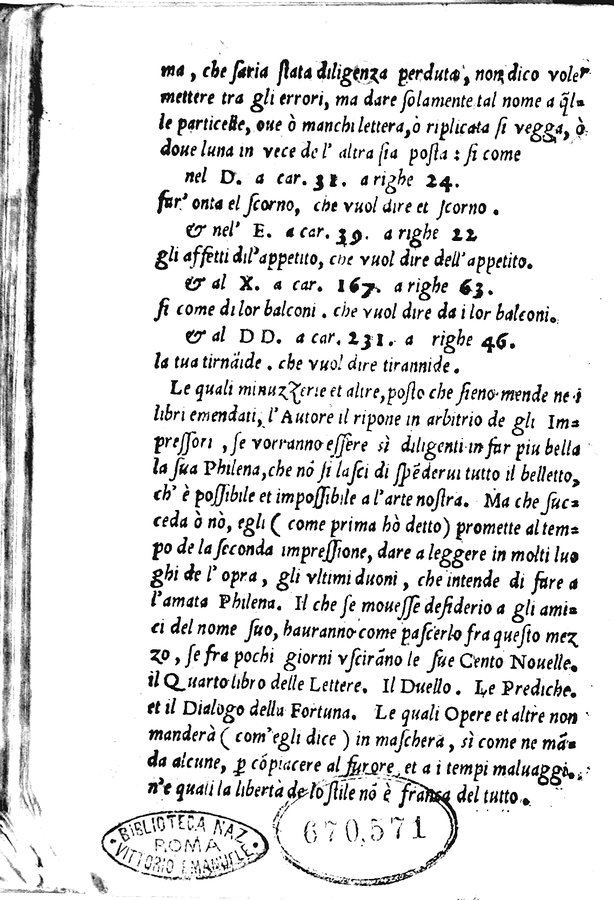 ma, che ſaria ſtata diligenza perduta, non dico voler
mettere tra gli errori, ma dare ſolamente tal nome a q̃l=
le particelle, oue ò manchi lettera, ò riplicata ſi vegga, ò
doue luna in vece de l' altra ſia poſta : ſi come
nel D. a car. 31. a righe 24.
fur' onta el ſcorno, che vuol dire et ſcorno.
& nel' E. a car. 39. a righe 22
gli affetti dil'appetito, che vuol dire dell'appetito.
& al X. a car. 167. a righe 63.
ſi come di lor balconi. che vuol dire da i lor balconi.
& al DD. a car. 231. a righe 46.
la tua tirnãide. che vuol dire tirannide.
Le quali minuzzerie et altre, poſto che ſieno mende ne i
libri emendati, l'Autore il ripone in arbitrio de gli Im=
preſſori, ſe vorranno eſſere sì diligenti in far piu bella
la ſua Philena, che nõ ſi laſci di ſpẽderui tutto il belletto,
ch' è poſſibile et impoſſibile a l'arte noſtra. Ma che ſuc=
ceda ò nò, egli ( come prima hò detto) promette al tem=
po de la ſeconda impreſſione, dare a leggere in molti luo
ghi de l' opra, gli vltimi duoni, che intende di fare a
l'amata Philena. Il che ſe moueſſe deſiderio a gli ami=
ci del nome ſuo, hauranno come paſcerlo fra queſto mez
zo, ſe fra pochi giorni vſcirãno le ſue Cento Nouelle.
il Quarto libro delle Lettere. Il Duello. Le Prediche.
et il Dialogo della Fortuna. Le quali Opere et altre non
manderà ( com'egli dice ) in maſchera, sì come ne mã=
da alcune, ꝑ cõpiacere al furore et a i tempi maluaggi.
n'e quali la libertà de lo ſtile nõ è franca del tutto.
BIBLIOTECA NAZ.
ROMA
VITTORIO EMANUELE
670,571